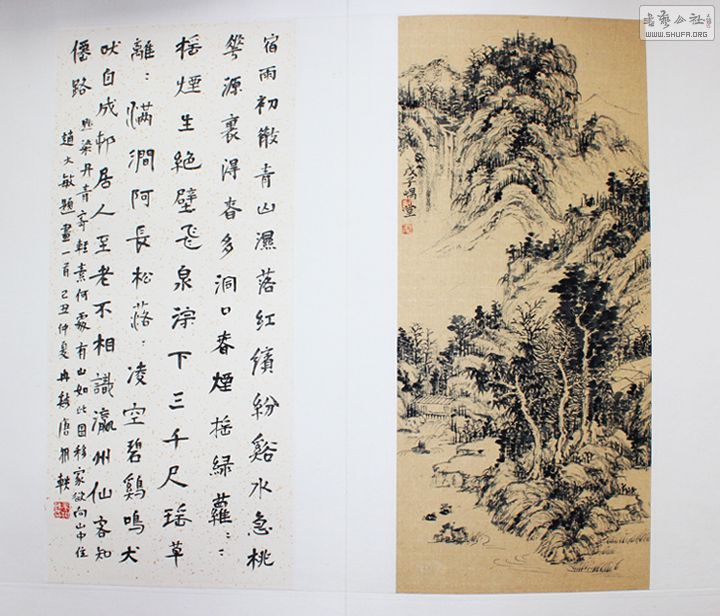 宿雨初散青山濕落紅繽紛谿水急桃
華源裏得春多洞口春煙搖綠蘿：：
搖煙生絕壁飛泉淙下三千尺瑤草
離：滿澗阿長松落：凌空碧鷄鳴犬
吠自成邨居人至老不相識瀛州仙客知
僊路點染丹青寄輕素何處有山如此圖移家欲向山中住
題畫一首己丑仲夏
戊子
書藝公社
WWW.SHUFA.ORG